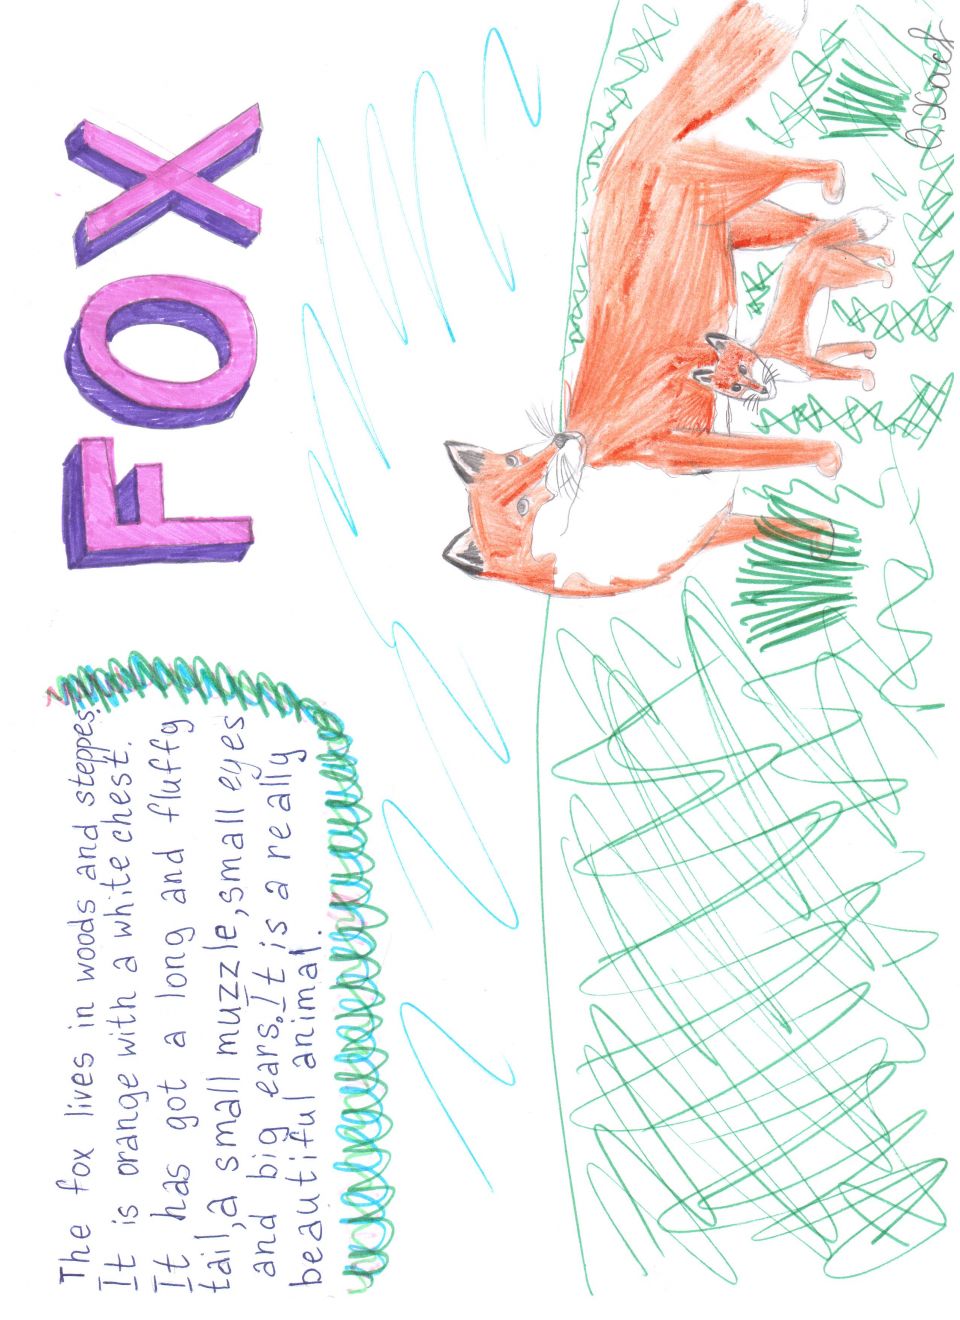 The fox lives in woods and steppes.
It is orange with a white chest.
It has got a long and fluffy
tail, a small muzzle, small eyes
and big ears. It is a really
beautiful animal.
FOX